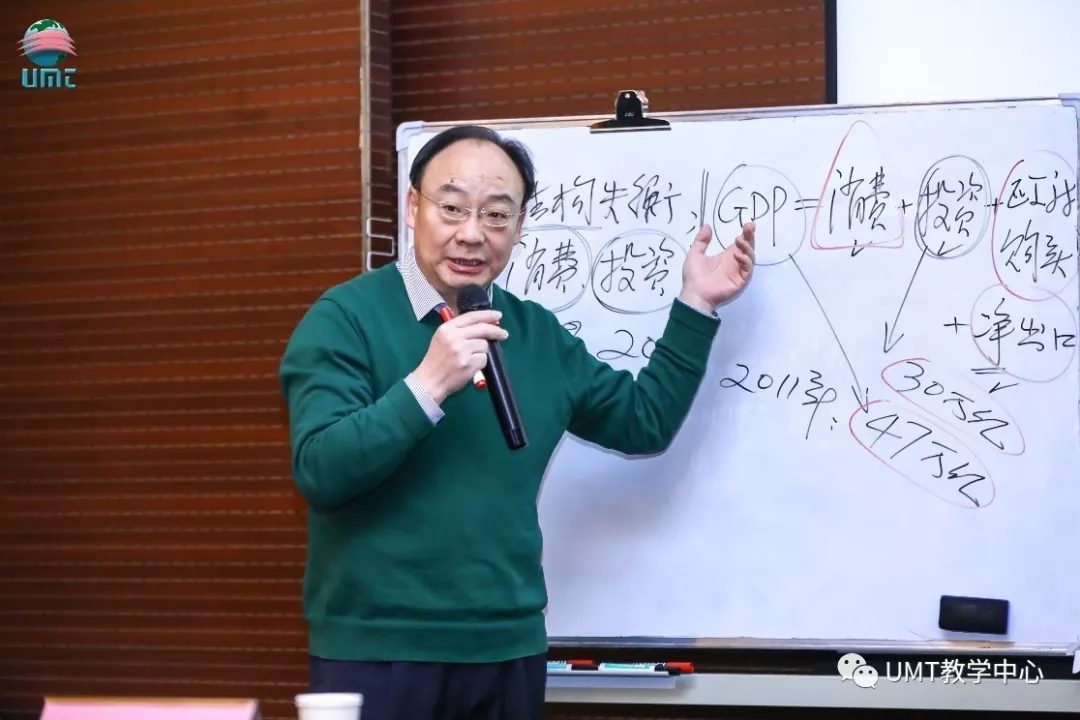 UMT
结构失衡，GDP=消费+投资+政府
消费 投资 购买
+净出口
20
2011年：
30万亿
47万亿
UMT教学中心